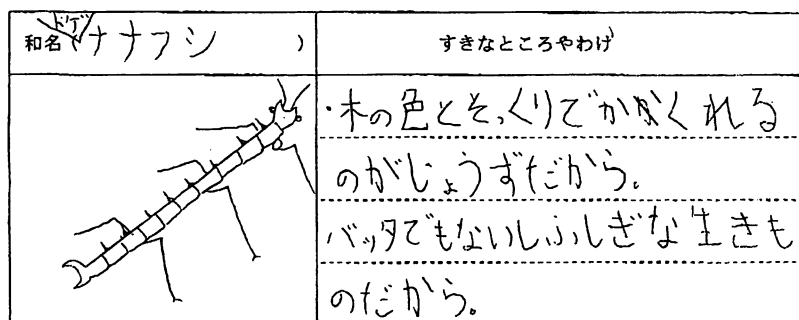 和名(トゲナナフシ)
すきなところやわけ
・木の色とそっくりでかくれる
のがじょうずだから。
バッタでもないしふしぎな生きも
のだから。